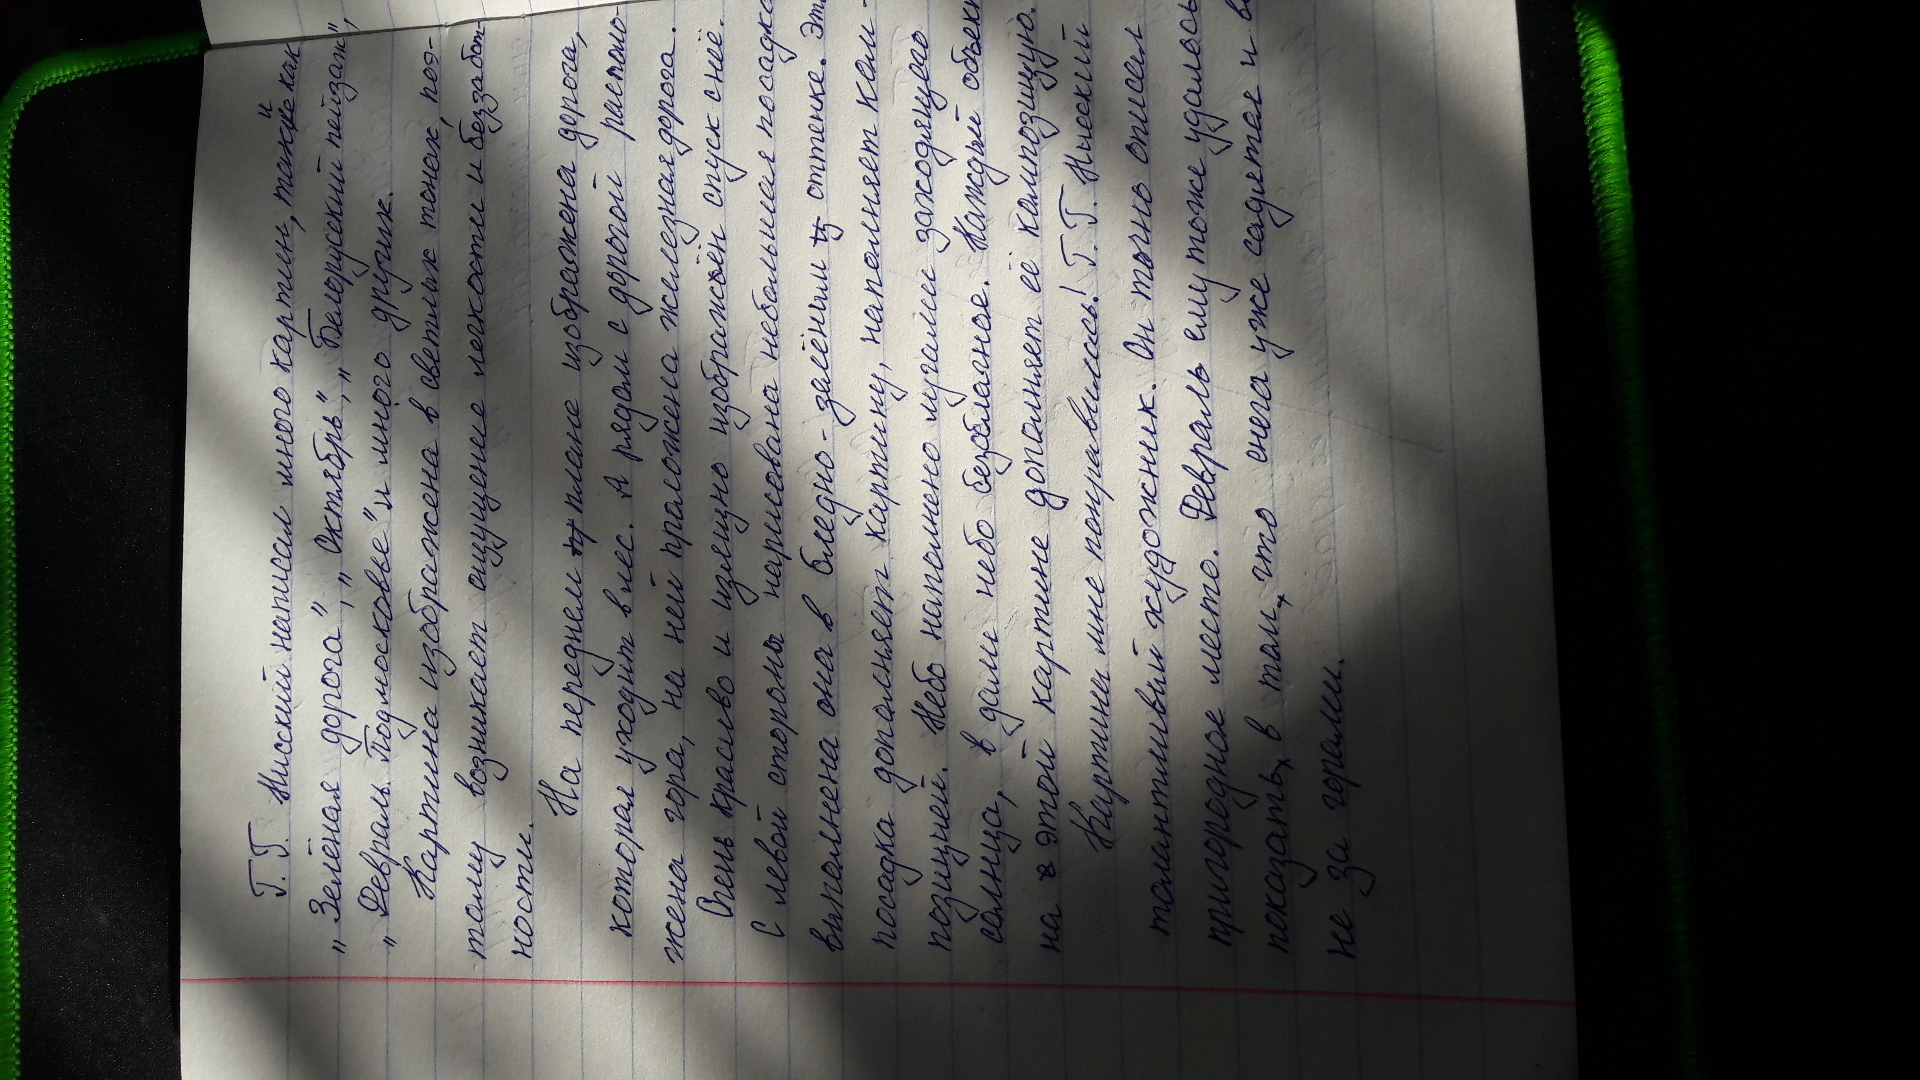 Г. Г. Нисский написал много картин, такие как
„Зелёная дорога”, „Октябрь”, „Белорусский пейзаж”,
„Февраль. Подмосковье” и много других.
Картина изображена в светлых тонах, поэ-
тому возникает ощущение легкости и беззабот-
ности.
На переднем плане изображена дорога,
которая уходит в лес. А рядом с дорогой располо-
жена гора, на ней проложена железная дорога.
Очень красиво и изящно изображён спуск с неё.
С левой стороны нарисована небольшая посадка
выполнена она в бледно-зелёным оттенке. Эт
посадка дополняет картину, наполняет ком-
позицией. Небо наполнено лучами заходящего
солнца, в дали небо безоблачное. Каждый объект
на этой картине дополняет её композицию.
Картина мне понравилась! Г. Г. Нисский
толантливый художник. Он точно описал
пригородное место. Февраль ему тоже удалось
показать, в том, что снега уже садятся и
не за горами.